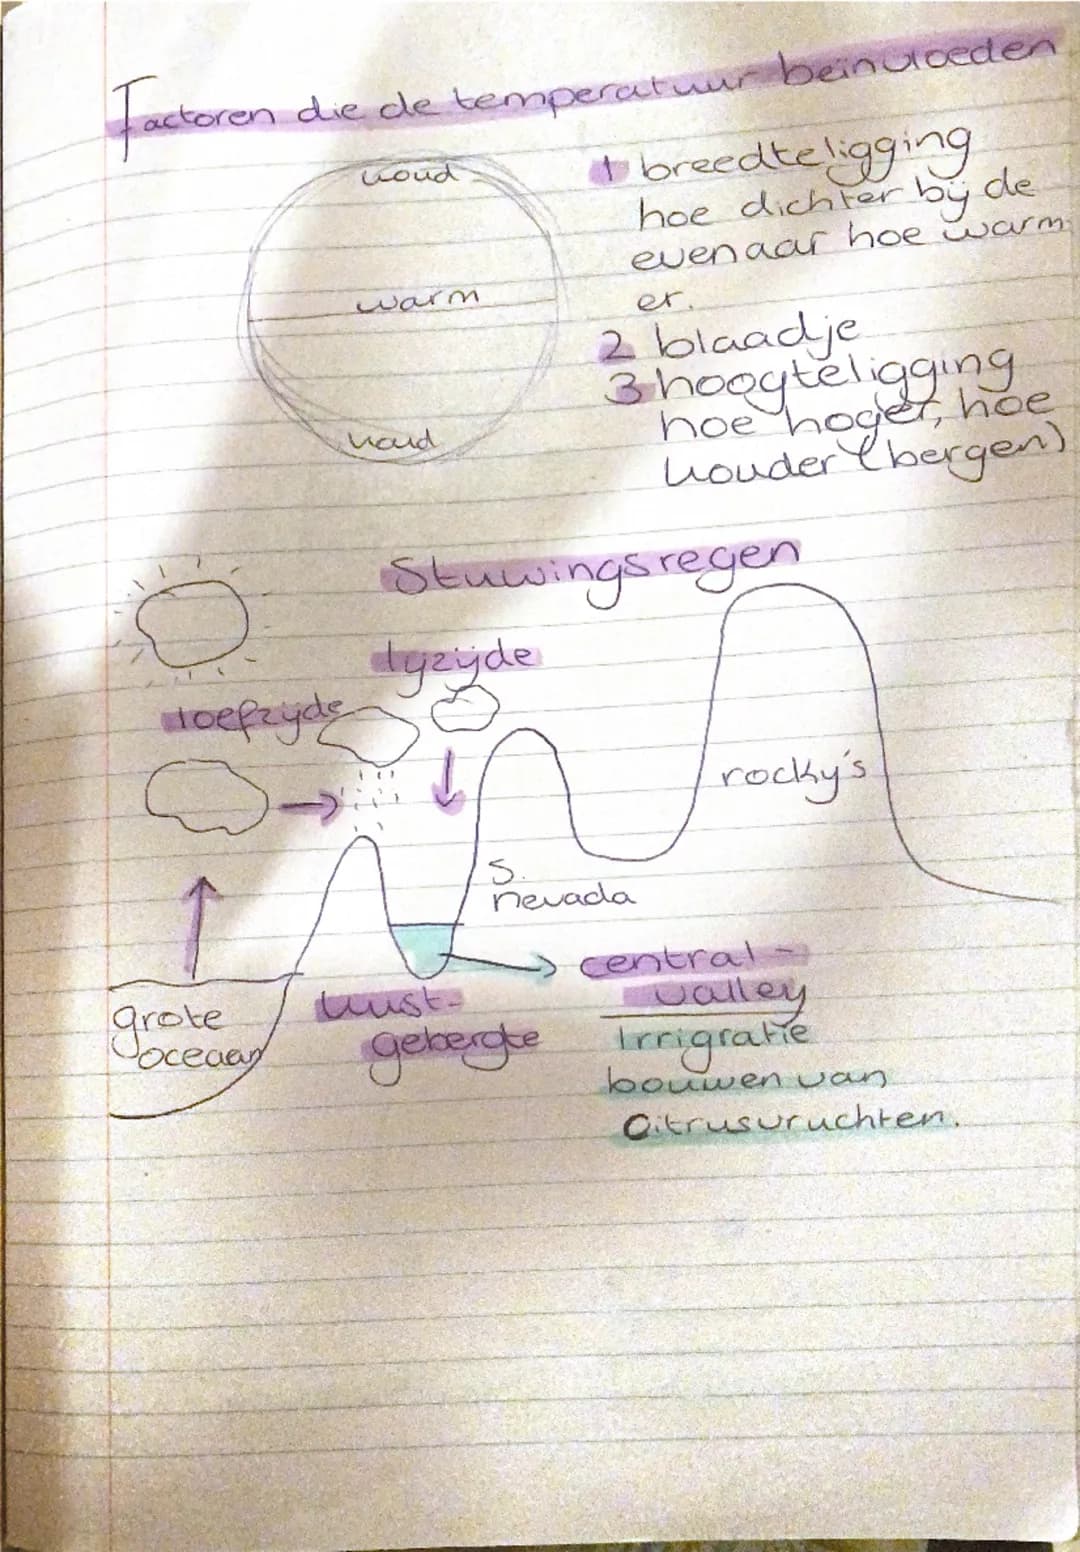 Factoren die de temperatuur beïnvloeden
koud
warm
koud
1 breedteligging
hoe dichter bij de
evenaar hoe warm
er.
2 blaadje
3 hoogteligging
hoe hoger, hoe
kouder (bergen)
Stuwingsregen
lyzijde
loefzijde
rocky's
S.
nevada
grote
oceaan
kust-
gebergte
central-
valley
Irrigratie
bouwen van
Citrusvruchten.